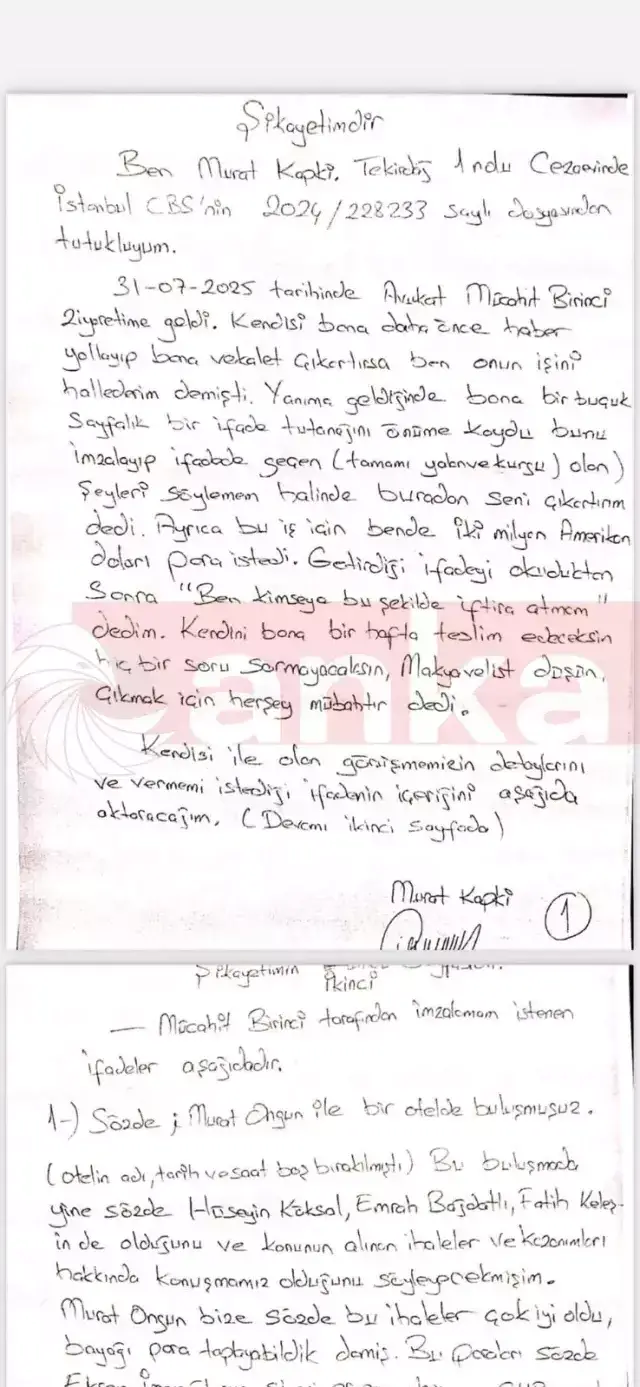 Şikayetimdir
Ben Murat Kapki. Tekirdağ 1 nolu Cezaevinde
İstanbul CBS'nin 2024/228233 sayılı dosyasından
tutukluyum.
31-07-2025 tarihinde Avukat Mücahit Birinci
Ziyaretime geldi. Kendisi bana daha önce haber
yollayıp bana vekalet çıkertırsa ben onun işini
hallederim demişti. Yanıma geldiğinde bana bir buçuk
Sayfalık bir ifade tutanağını önüme koydu bunu
imzalayıp ifadede geçen (tamamı yalan ve kurgu) olan)
Şeyleri söylemem halinde buradan seni çıkartırım
dedi. Ayrıca bu iş için bende iki milyon Amerikan
doları para istedi. Getirdiği ifadeyi okuduktan
Sonra "Ben kimseye bu şekilde iftira atmam"
dedim. Kendini bana bir hafta teslim edeceksin
hiç bir soru sormayacaksın, Makyavelist düşün,
Çıkmak için herşey mübahtır dedi.
anka
Kendisi ile olan görüşmemizin detaylarını
ve vermemi istediği ifadenin içeriğini aşağıda
aktaracağım. (Devamı ikinci sayfada)
Murat Kapki
1
Şikayetimin İkinci
— Mücahit Birinci tarafından imzalamam istenen
ifadeler aşağıdadır.
1-) Sözde ; Murat Ongun ile bir otelde buluşmuşuz.
(otelin adı, tarih ve saat boş bırakılmıştı) Bu buluşmada
yine sözde Hüseyin Köksal, Emrah Bağdatlı, Fatih Keleş-
in de olduğunu ve konunun alınan ihaleler ve kazanımları
hakkında konuşmamız olduğunu söyleyecekmişim.
Murat Ongun bize sözde bu ihaleler çok iyi oldu,
bayağı para toplayabildik demiş. Bu paraları sözde